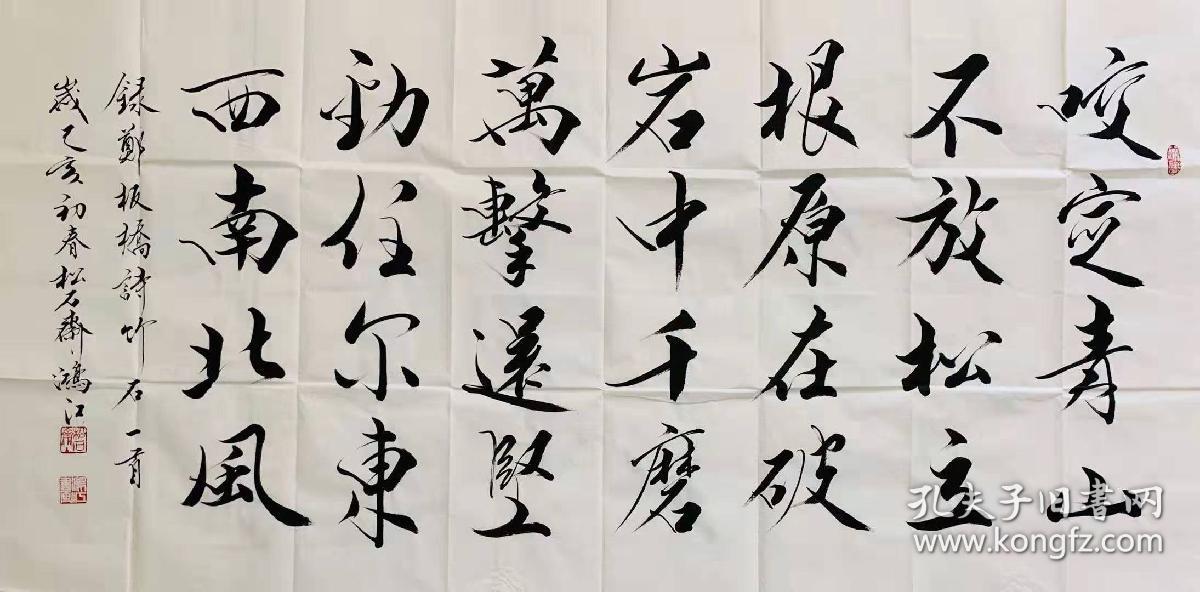 咬定青山
不放松立
根原在破
岩中千磨
萬擊還堅
劲任尔東
西南北風
録鄭板橋詩竹石一首
歲己亥初春松石齋鴻江
孔夫子旧書网
www.kongfz.com